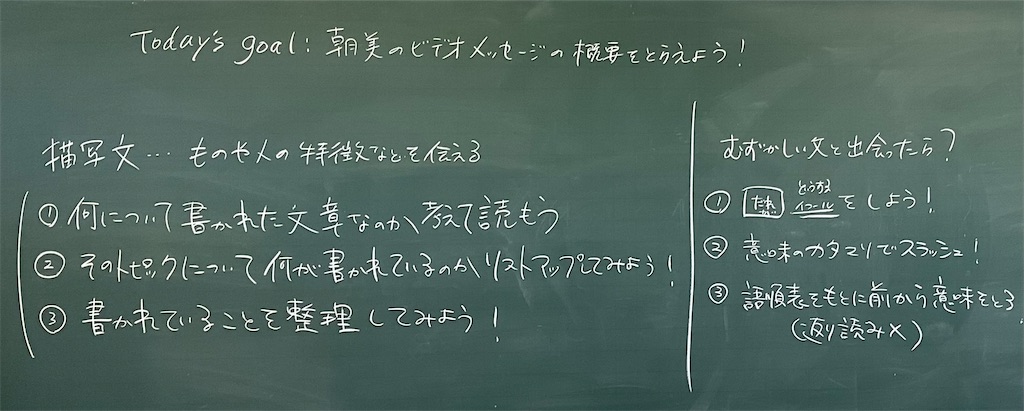 Today's goal: 朝美のビデオメッセージの概要をとらえよう!
描写文… ものや人の特徴などを伝える
① 何について書かれた文章なのか、考えて読もう
② そのトピックについて何が書かれているのかリストアップしてみよう!
③ 書かれていることを整理してみよう!
むずかしい文と出会ったら?
① だれ どうする イコール をしよう!
② 意味のカタマリでスラッシュ!
③ 語順表をもとに前から意味をとる
(返り読み×)